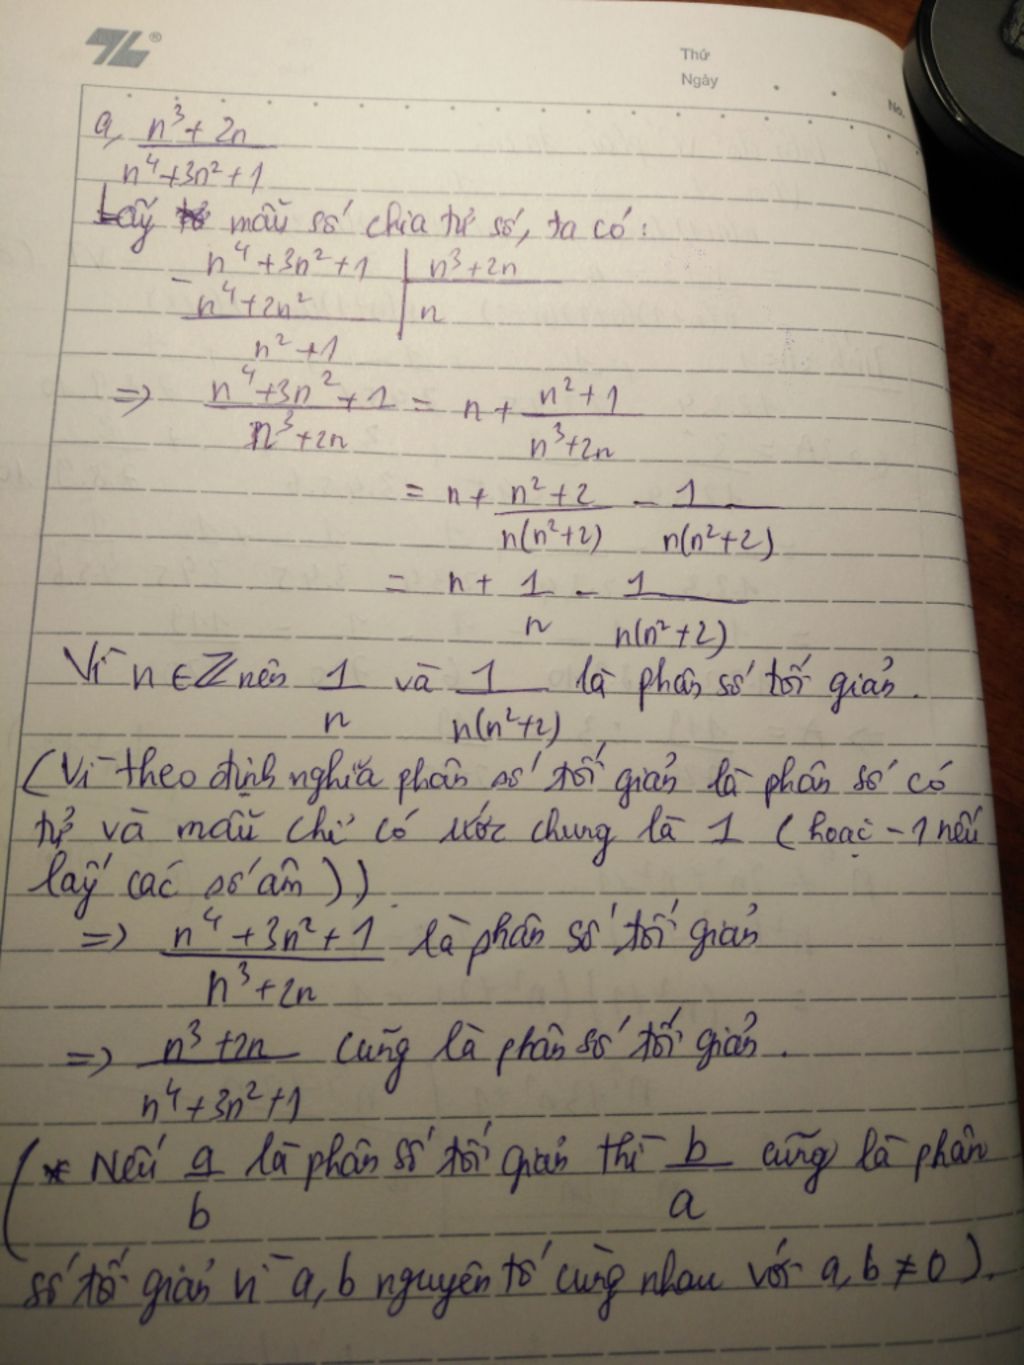 Thứ
Ngày
No.
a, n³ + 2n / n⁴ + 3n² + 1
Lấy mẫu số chia tử số, ta có:
- n⁴ + 3n² + 1 | n³ + 2n
n⁴ + 2n² | n
n² + 1
=> n⁴ + 3n² + 1 / n³ + 2n = n + n² + 1 / n³ + 2n
= n + n² + 2 / n(n² + 2) - 1 / n(n² + 2)
= n + 1 / n - 1 / n(n² + 2)
Vì n ∈ Z nên 1 / n và 1 / n(n² + 2) là phân số tối giản.
(Vì theo định nghĩa phân số tối giản là phân số có
tử và mẫu chỉ có ước chung là 1 (hoặc -1 nếu
lấy các số âm))
=> n⁴ + 3n² + 1 / n³ + 2n là phân số tối giản
=> n³ + 2n / n⁴ + 3n² + 1 cũng là phân số tối giản.
(* Nếu a / b là phân số tối giản thì b / a cũng là phân
số tối giản vì a, b nguyên tố cùng nhau với a, b ≠ 0).